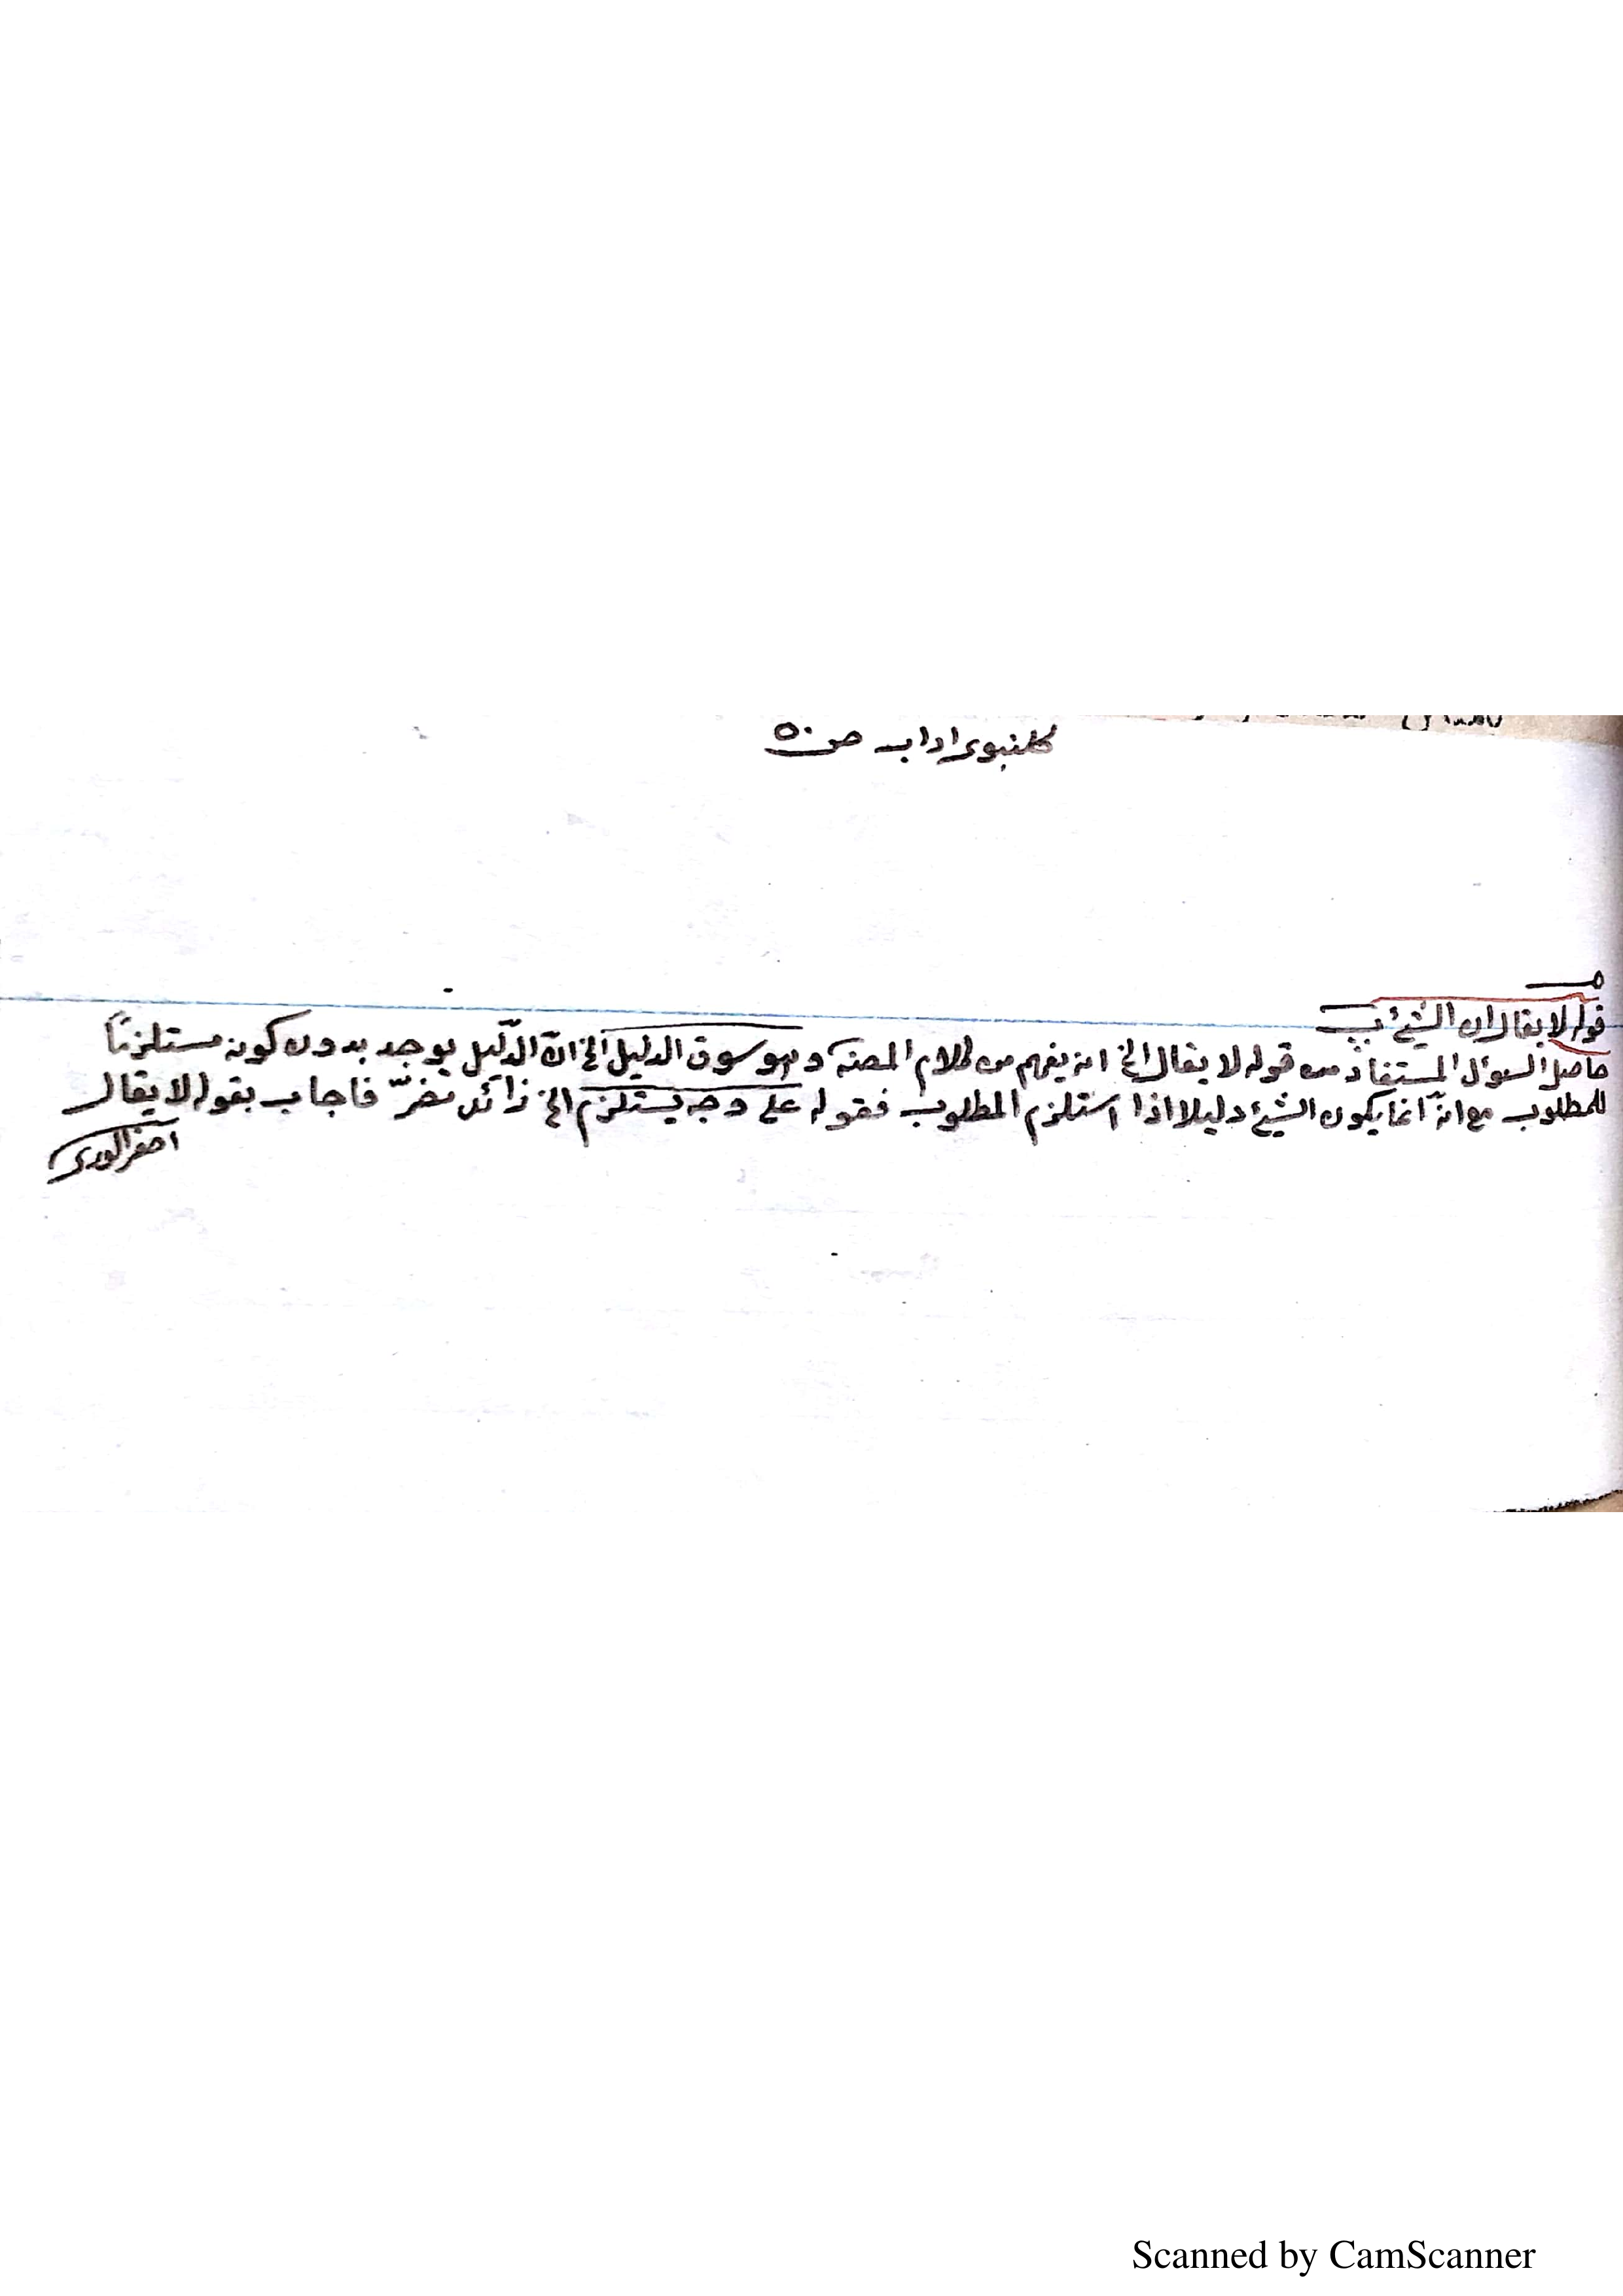 كلنبوى اداب ص ٥٠
قوله لا يقال ان الشيئ
حاصل السؤال المستفاد من قوله لا يقال الخ انه يفهم من كلام المصنف وهو سوق الدليل الخ انّ الدّليل يوجد بدون كونه مستلزمًا
للمطلوب مع انّه انما يكون الشيئ دليلا اذا استلزم المطلوب فقوله على وجه يستلزم الخ زائد مضرّ فاجاب بقوله لا يقال
اصغر الورى
Scanned by CamScanner